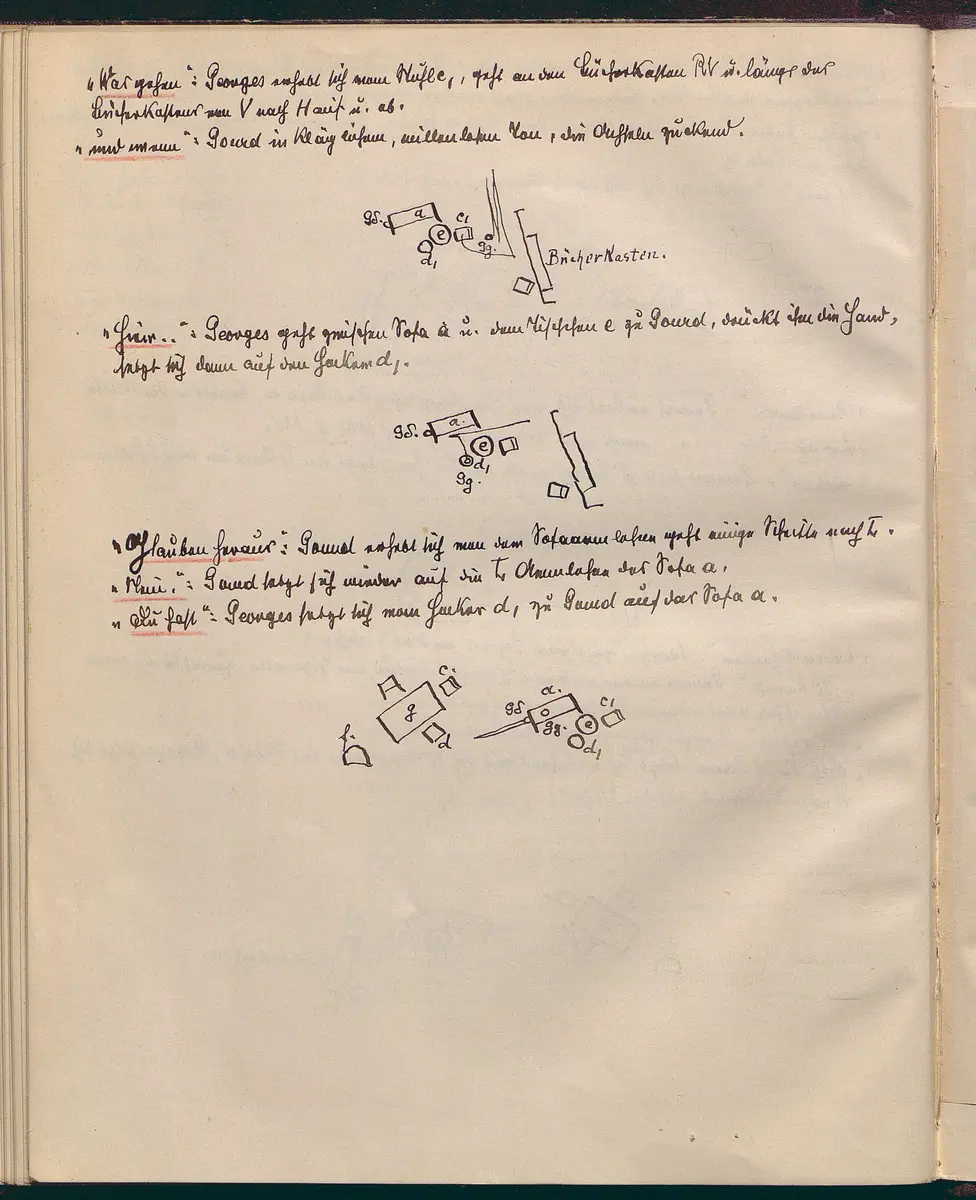 "Was gehen": Georges erhebt sich vom Stuhle c₁, geht an den Bücherkasten RV u. längs des
Bücherkastens von V nach H auf u. ab.
"und wenn": Gourd in kläglichem, willenlosen Ton, die Achseln zuckend.
gd. a
e c₁
d₁ gg.
Bücherkasten.
"Hier..": Georges geht zwischen Sofa a u. dem Tischchen e zu Gourd, drückt ihm die Hand,
setzt sich dann auf den Hocker d₁.
gd. a.
e
d₁
gg.
"Glauben heraus": Gourd erhebt sich von dem Sofaarmlehne geht einige Schritte nach L.
"Nein.": Gourd setzt sich wieder auf die L Armlehne des Sofa a.
"Du hast": Georges setzt sich vom Hocker d₁ zu Gourd auf das Sofa a.
c. g
f. d
a. gd
gg. e c₁
d₁